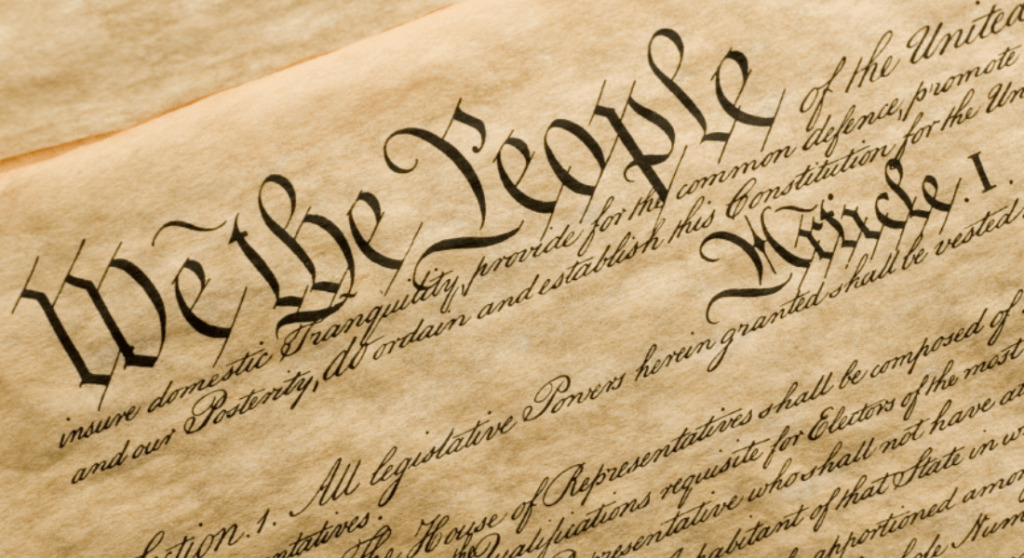 We the People of the United
insure domestic Tranquility, provide for the common defence, promote
and our Posterity, do ordain and establish this Constitution for the Un
Article. I.
ction. 1. All legislative Powers herein granted shall be vested
ntatives.
The House of Representatives shall be composed of
Qualifications requisite for Electors of the most
epresentative who shall not have a
habitant of that State in w
apportioned amon
ole Num